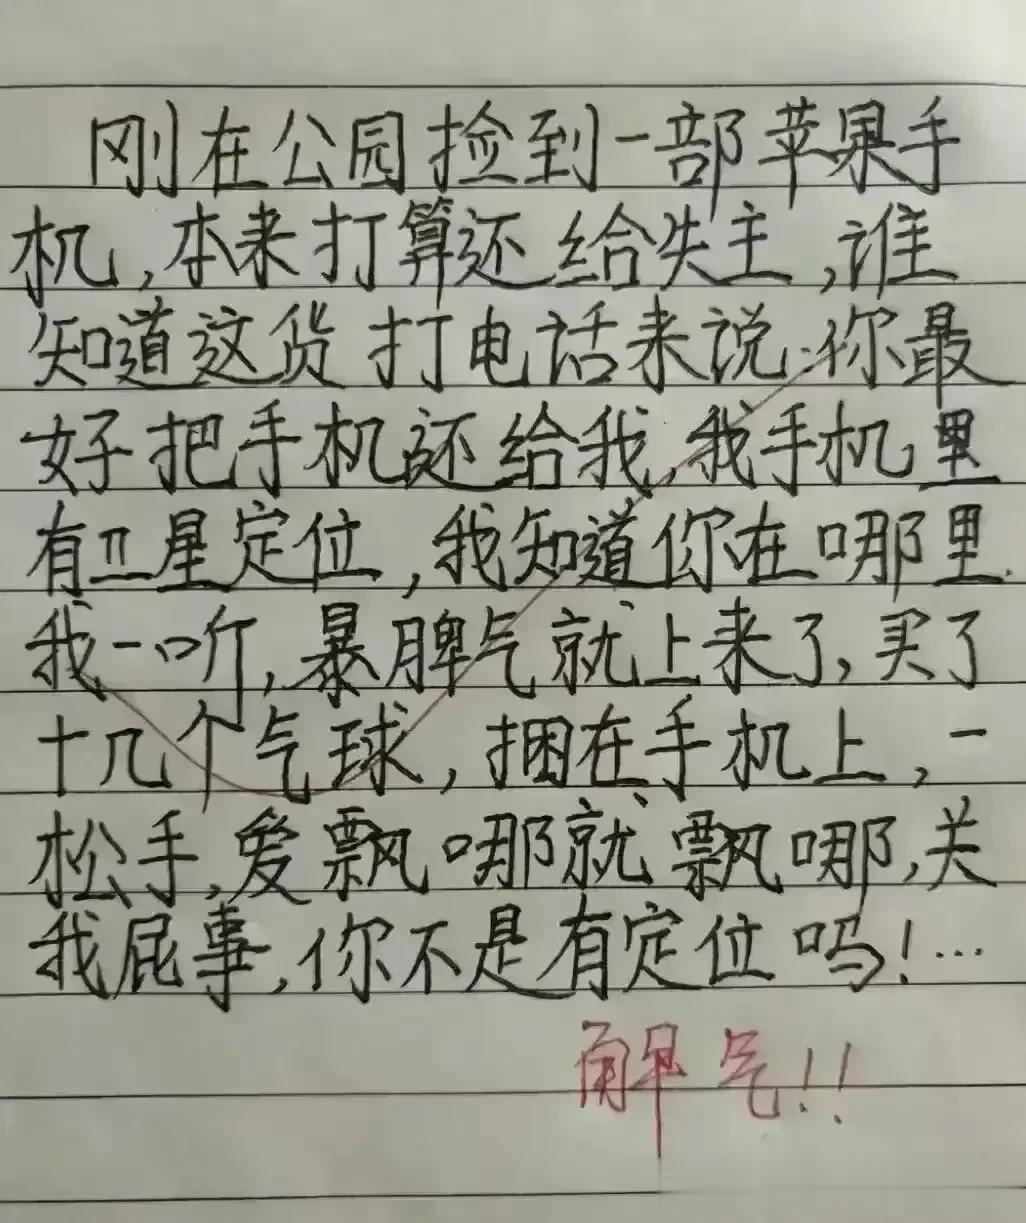 刚在公园捡到一部苹果手
机,本来打算还给失主,谁
知道这货打电话来说:你最
好把手机还给我,我手机里
有卫星定位,我知道你在哪里.
我一听,暴脾气就上来了,买了
十几个气球,捆在手机上,一
松手,爱飘哪就飘哪,关
我屁事,你不是有定位吗!…
解气!!